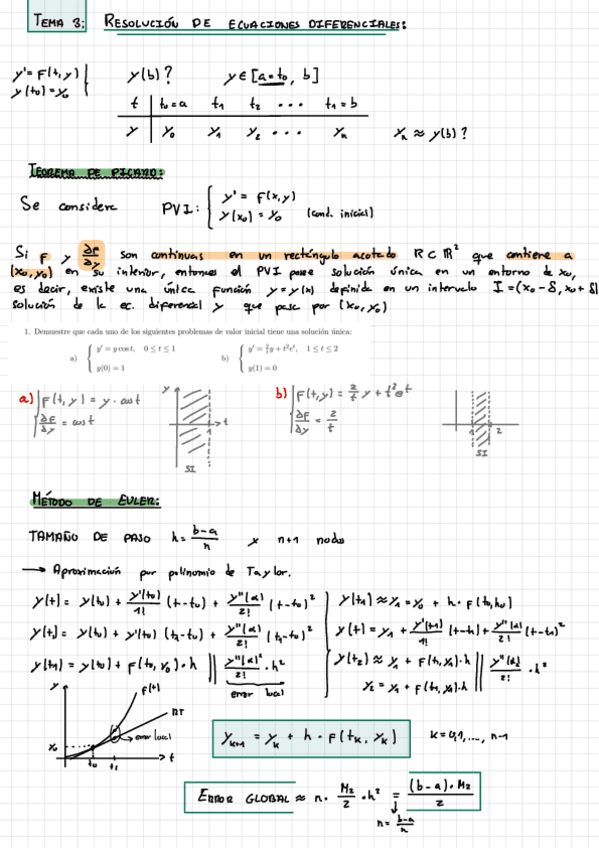 TEMA 3: RESOLUCIÓN DE ECUACIONES DIFERENCIALES:
y' = F(t,y)
y(t₀) = y₀
y(b)? y ∈ [a=t₀, b]
t | t₀=a t₁ t₂ ... t₁=b
y | y₀ y₁ y₂ ... yₙ
yₙ ≈ y(b)?
TEOREMA DE PICARD:
Se considera PVI: { y' = F(x,y)
y(x₀) = y₀ (cond. inicial)
Si F y ∂F/∂y son continuas en un rectángulo acotado R ⊂ ℝ² que contiene a
(x₀,y₀) en su interior, entonces el PVI posee solución única en un entorno de x₀,
es decir, existe una única función y=y(x) definida en un intervalo I=(x₀-δ, x₀+δ)
solución de la ec. diferencial y que pasa por (x₀,y₀)
1. Demuestre que cada uno de los siguientes problemas de valor inicial tiene una solución única:
a) { y' = y cos t, 0 ≤ t ≤ 1
y(0) = 1
b) { y' = 2/t y + t²eᵗ, 1 ≤ t ≤ 2
y(1) = 0
a) F(t,y) = y·cos t
∂F/∂y = cos t
y
t
1
SI
b) F(t,y) = 2/t y + t²eᵗ
∂F/∂y = 2/t
1 2
SI
MÉTODO DE EULER:
TAMAÑO DE PASO h = (b-a)/n y n+1 nodos
→ Aproximación por polinomio de Taylor.
y(t) = y(t₀) + y'(t₀)/1! (t-t₀) + y''(α)/2! (t-t₀)²
y(t) = y(t₀) + y'(t₀) (t₁-t₀) + y''(α)/2! (t₁-t₀)²
y(t₁) = y(t₀) + F(t₀,y₀)·h || y''(α)²/2! · h²
error local
y(t₁) ≈ y₁ = y₀ + h·F(t₀,y₀)
y(t) = y₁ + y'(t₁)/1! (t-t₁) + y''(α)/2! (t-t₁)²
y(t₂) ≈ y₁ + F(t₁,y₁)·h || y''(α)/2! · h²
y₂ = y₁ + F(t₁,y₁)·h
y
F(t)
RT
error local
y₀
t₀ t₁
t
yₖ₊₁ = yₖ + h · F(tₖ, yₖ) k = 0,1,...., n-1
ERROR GLOBAL ≈ n · M₂/2 · h² = (b-a)·M₂/2
n = (b-a)/n